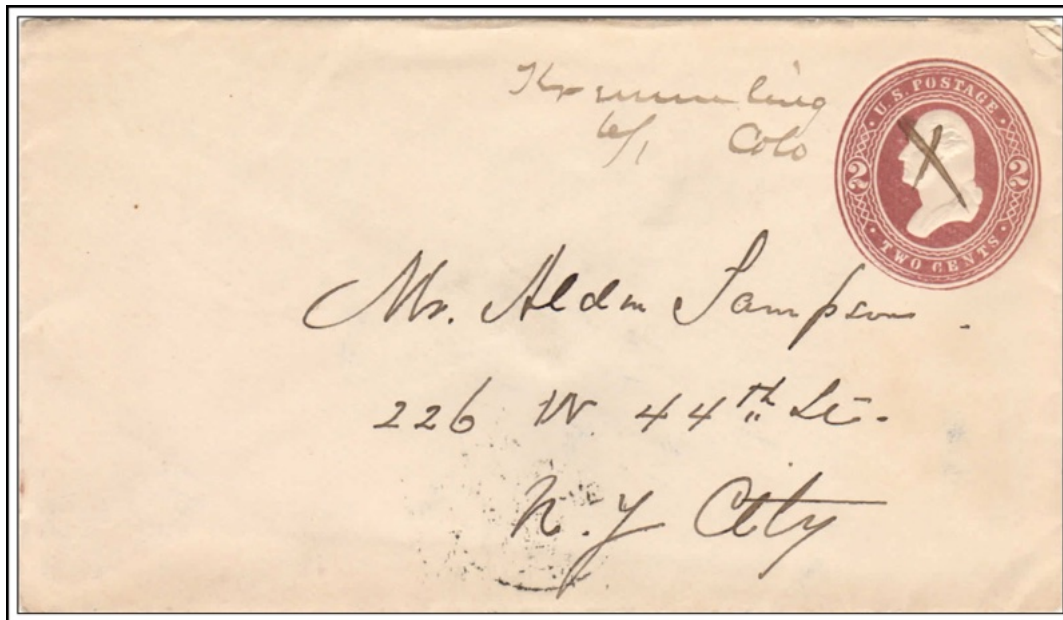 Kremmling
6/1 Colo
U.S. POSTAGE
2 2
TWO CENTS
Mr. Alden Sampson.
226 W. 44th St.
N.Y City